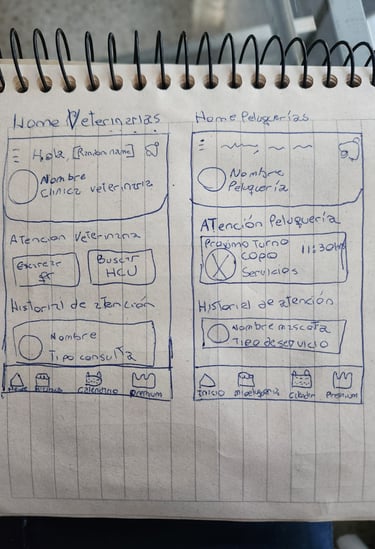 Home Veterinarias
Hola, [Random name]
Nombre
Clinica veterinaria
Atencion Veterinaria
Escanear
QR
Buscar
HCU
Historial de atención
Nombre
Tipo consulta
Calendario
Premium
Home Peluquerías
Nombre
Peluquería
Atención Peluquería
Proximo turno
11:30
COPO
Servicios
Historial de atención
Nombre mascota
Tipo de servicio
Inicio
mi peluqueria
Premium